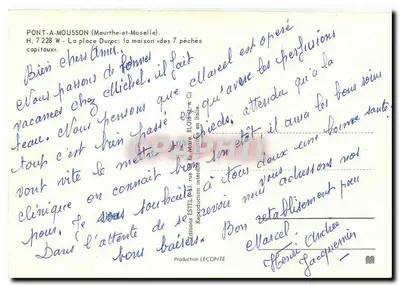 PONT-A-MOUSSON (Meurthe-et-Moselle).
H. 7 228 W - La place Duroc: la maison «des 7 péchés
capitaux».
Bien chers Amis.
Nous passons de bonnes
vacances chez Michel. il fait
beau. Nous pensons que Marcel est opéré
tout c'est bien passé et qu'avec les perfusions
vont vite le mettre sur pieds, attendu qu'à la
clinique on connait bien on tient, il aura les bons soins
pour. Je vous souhaite à tous deux une bonne santé.
Dans l'attente de se revoir nous vous adressons nos
bons baisers. Bon rétablissement pour
Marcel.
Henri Andrée
Jacquemin
Editions ESTEL
Reproduction interdite
Production LECONTE
www.cparama.com